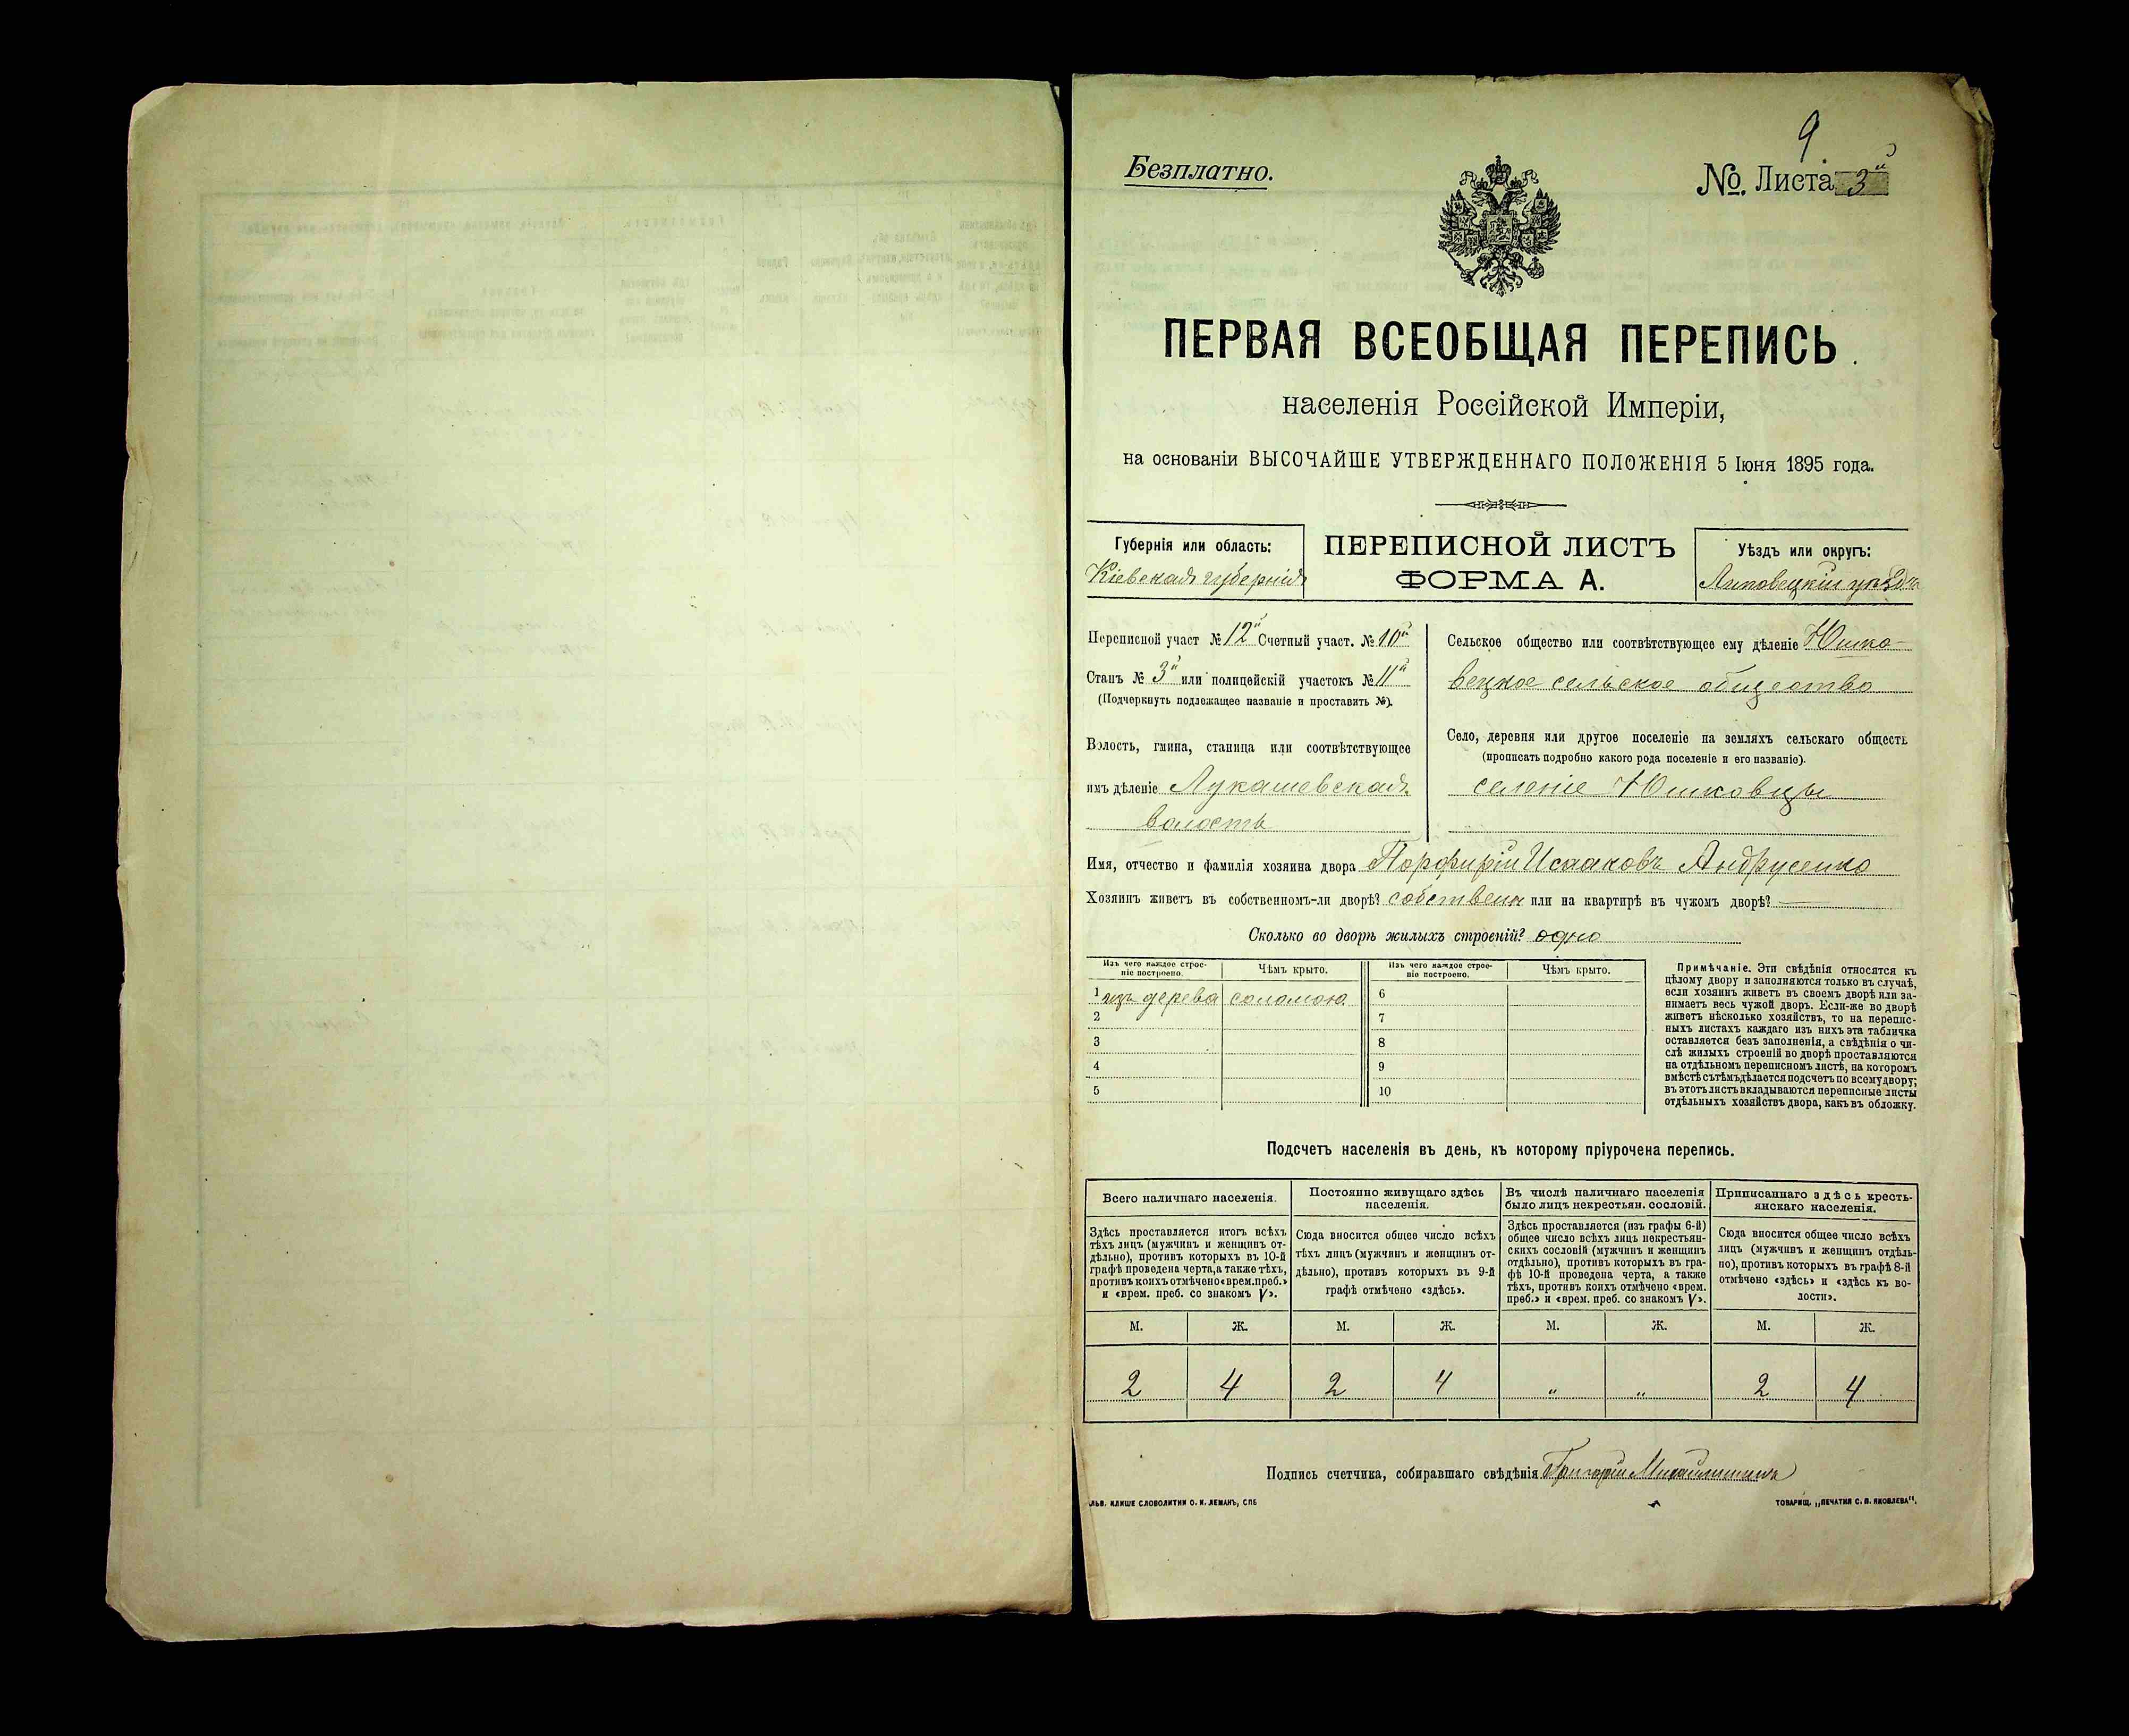 9
Безплатно.
№. Листа 3й
ПЕРВАЯ ВСЕОБЩАЯ ПЕРЕПИСЬ
населенія Россійской Имперіи,
на основаніи ВЫСОЧАЙШЕ УТВЕРЖДЕННАГО ПОЛОЖЕНІЯ 5 Іюня 1895 года.
Губернія или область:
Кіевская губернія
ПЕРЕПИСНОЙ ЛИСТЪ
ФОРМА А.
Уѣздъ или округъ:
Липовецкій уѣздъ
Переписной участ № 12й Счетный участ. № 10й
Станъ № 3й или полицейскій участокъ № 11й
(Подчеркнуть подлежащее названіе и проставить №).
Волость, гмина, станица или соотвѣтствующее
имъ дѣленіе Лукашевская
волость
Сельское общество или соотвѣтствующее ему дѣленіе Юшко-
вецкое сельское общество
Село, деревня или другое поселеніе на земляхъ сельскаго обществ
(прописать подробно какого рода поселеніе и его названіе).
селеніе Юшковцы
Имя, отчество и фамилія хозяина двора Порфирій Исааковъ Андрусенко
Хозяинъ живетъ въ собственномъ-ли дворѣ? собствен или на квартирѣ въ чужомъ дворѣ? —
Сколько во дворѣ жилыхъ строеній? одно
Изъ чего каждое строе-
ніе построено.
Чѣмъ крыто.
Изъ чего каждое строе-
ніе построено.
Чѣмъ крыто.
1 изъ дерева соломою 6
2 7
3 8
4 9
5 10
Примѣчаніе. Эти свѣдѣнія относятся къ
цѣлому двору и заполняются только въ случаѣ,
если хозяинъ живетъ въ своемъ дворѣ или за-
нимаетъ весь чужой дворъ. Если-же во дворѣ
живетъ нѣсколько хозяйствъ, то на перепис-
ныхъ листахъ каждаго изъ нихъ эта табличка
оставляется безъ заполненія, а свѣдѣнія о чи-
слѣ жилыхъ строеній во дворѣ проставляются
на отдѣльномъ переписномъ листѣ, на которомъ
вмѣстѣ съ тѣмъ дѣлается подсчетъ по всему двору;
въ этотъ листъ вкладываются переписные листы
отдѣльныхъ хозяйствъ двора, какъ въ обложку.
Подсчетъ населенія въ день, къ которому пріурочена перепись.
Всего наличнаго населенія.
Здѣсь проставляется итогъ всѣхъ
тѣхъ лицъ (мужчинъ и женщинъ от-
дѣльно), противъ которыхъ въ 10-й
графѣ проведена черта, а также тѣхъ,
противъ коихъ отмѣчено «врем. преб.»
и «врем. преб. со знакомъ V».
Постоянно живущаго здѣсь
населенія.
Сюда вносится общее число всѣхъ
тѣхъ лицъ (мужчинъ и женщинъ от-
дѣльно), противъ которыхъ въ 9-й
графѣ отмѣчено «здѣсь».
Въ числѣ наличнаго населенія
было лицъ некрестьян. сословій.
Здѣсь проставляется (изъ графы 6-й)
общее число всѣхъ лицъ некрестьян-
скихъ сословій (мужчинъ и женщинъ
отдѣльно), противъ которыхъ въ гра-
фѣ 10-й проведена черта, а также
тѣхъ, противъ коихъ отмѣчено «врем.
преб.» и «врем. преб. со знакомъ V».
Приписаннаго здѣсь кресть-
янскаго населенія.
Сюда вносится общее число всѣхъ
лицъ (мужчинъ и женщинъ отдѣль-
но), противъ которыхъ въ графѣ 8-й
отмѣчено «здѣсь» и «здѣсь къ во-
лости».
М. Ж. М. Ж. М. Ж. М. Ж.
2 4 2 4 „ „ 2 4
Подпись счетчика, собиравшаго свѣдѣнія Григорій
ЛЬВ. КЛИШЕ СЛОВОЛИТНИ О. И. ЛЕМАНЪ, СПБ
ТОВАРИЩ. „ПЕЧАТНЯ С. П. ЯКОВЛЕВА“.